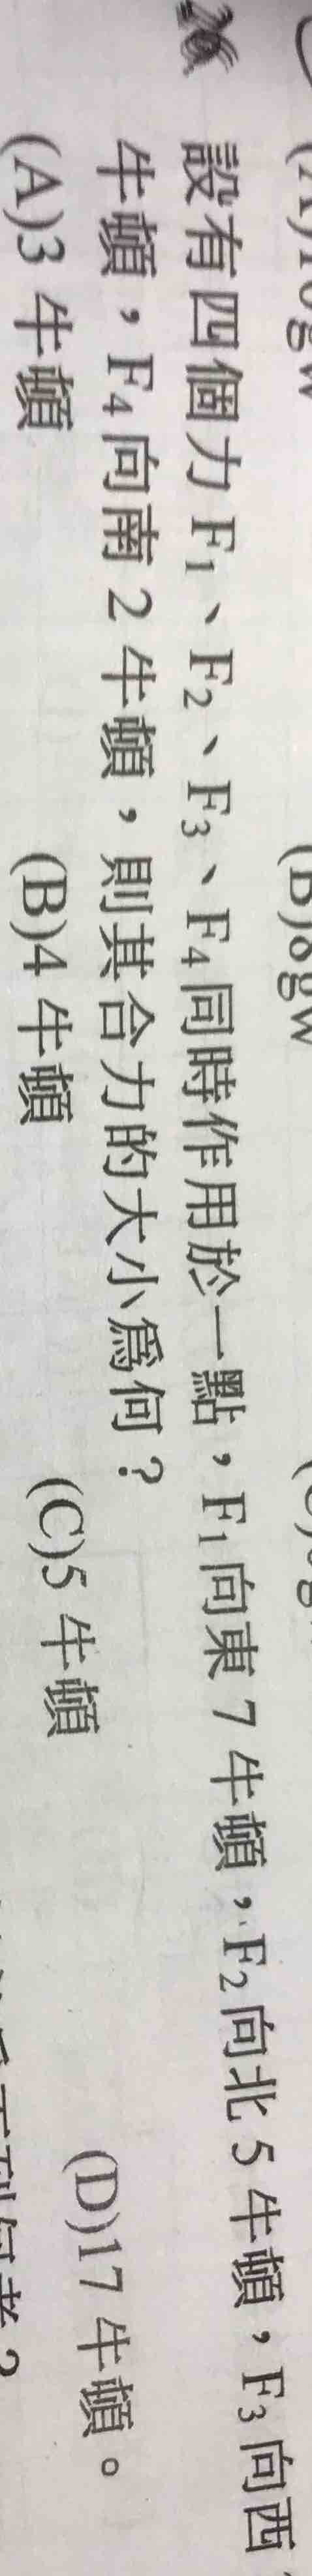 26
設有四個力 F₁、F₂、F₃、F₄ 同時作用於一點，F₁ 向東 7 牛頓，F₂ 向北 5 牛頓，F₃ 向西
牛頓，F₄ 向南 2 牛頓，則其合力的大小為何？
(A)3 牛頓 (B)4 牛頓 (C)5 牛頓 (D)17 牛頓。